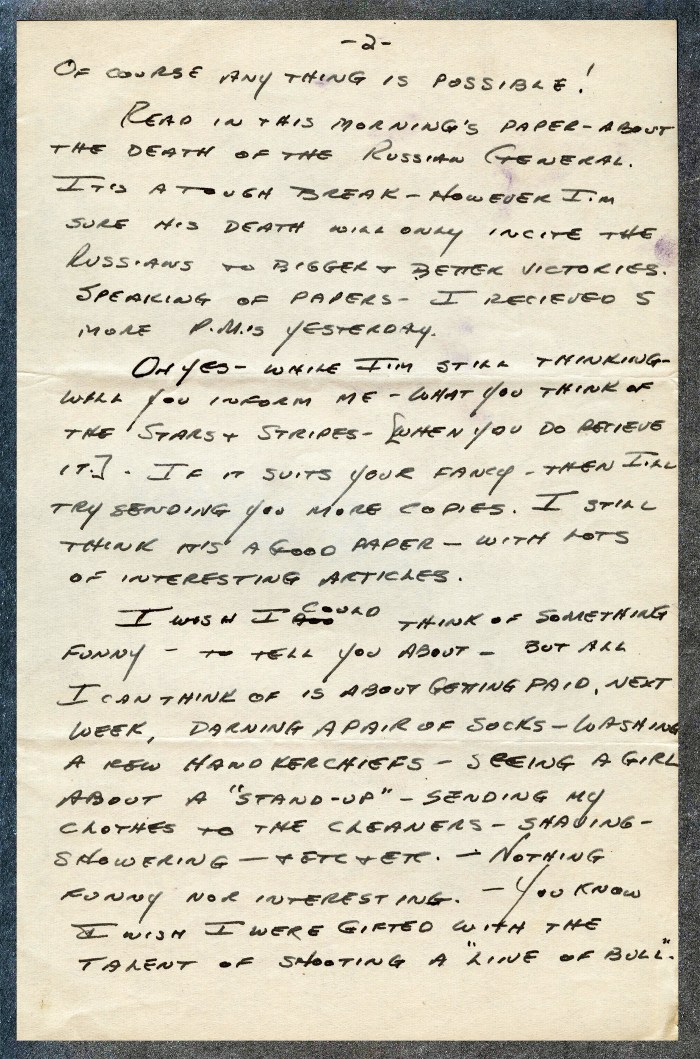 -2-
OF COURSE ANY THING IS POSSIBLE!
READ IN THIS MORNING'S PAPER - ABOUT
THE DEATH OF THE RUSSIAN GENERAL.
IT'S A TOUGH BREAK - HOWEVER I'M
SURE HIS DEATH WILL ONLY INCITE THE
RUSSIANS TO BIGGER + BETTER VICTORIES.
SPEAKING OF PAPERS - I RECIEVED 5
MORE P.M.'S YESTERDAY.
OH YES - WHILE I'M STILL THINKING -
WILL YOU INFORM ME - WHAT YOU THINK OF
THE STARS + STRIPES - [WHEN YOU DO RECIEVE
IT.] . IF IT SUITS YOUR FANCY - THEN I'LL
TRY SENDING YOU MORE COPIES. I STILL
THINK IT'S A GOOD PAPER - WITH LOTS
OF INTERESTING ARTICLES.
I WISH I COULD THINK OF SOMETHING
FUNNY - TO TELL YOU ABOUT - BUT ALL
I CAN THINK OF IS ABOUT GETTING PAID, NEXT
WEEK, DARNING A PAIR OF SOCKS - WASHING
A FEW HANDKERCHIEFS - SEEING A GIRL
ABOUT A "STAND-UP" - SENDING MY
CLOTHES TO THE CLEANERS - SHAVING -
SHOWERING - + ETC + ETC. - NOTHING
FUNNY NOR INTERESTING. - YOU KNOW
I WISH I WERE GIFTED WITH THE
TALENT OF SHOOTING A "LINE OF BULL".